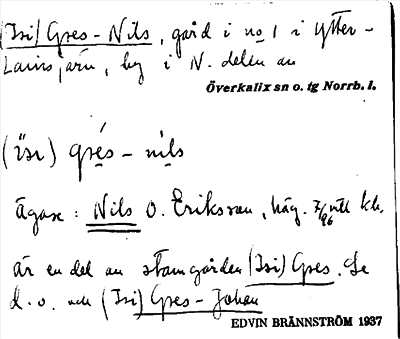 (Isi) Gres-Nils, gård i no 1 i Ytter-
Lainsjärv, by i N. delen av
Överkalix sn o. tg Norrb. l.
(ïsɩ) grés-nɩls
ägare: Nils O. Eriksson, häg.
är en del av stamgården (Isi) Gres. Se
d. o. och (Isi) Gres-Johan
EDVIN BRÄNNSTRÖM 1937